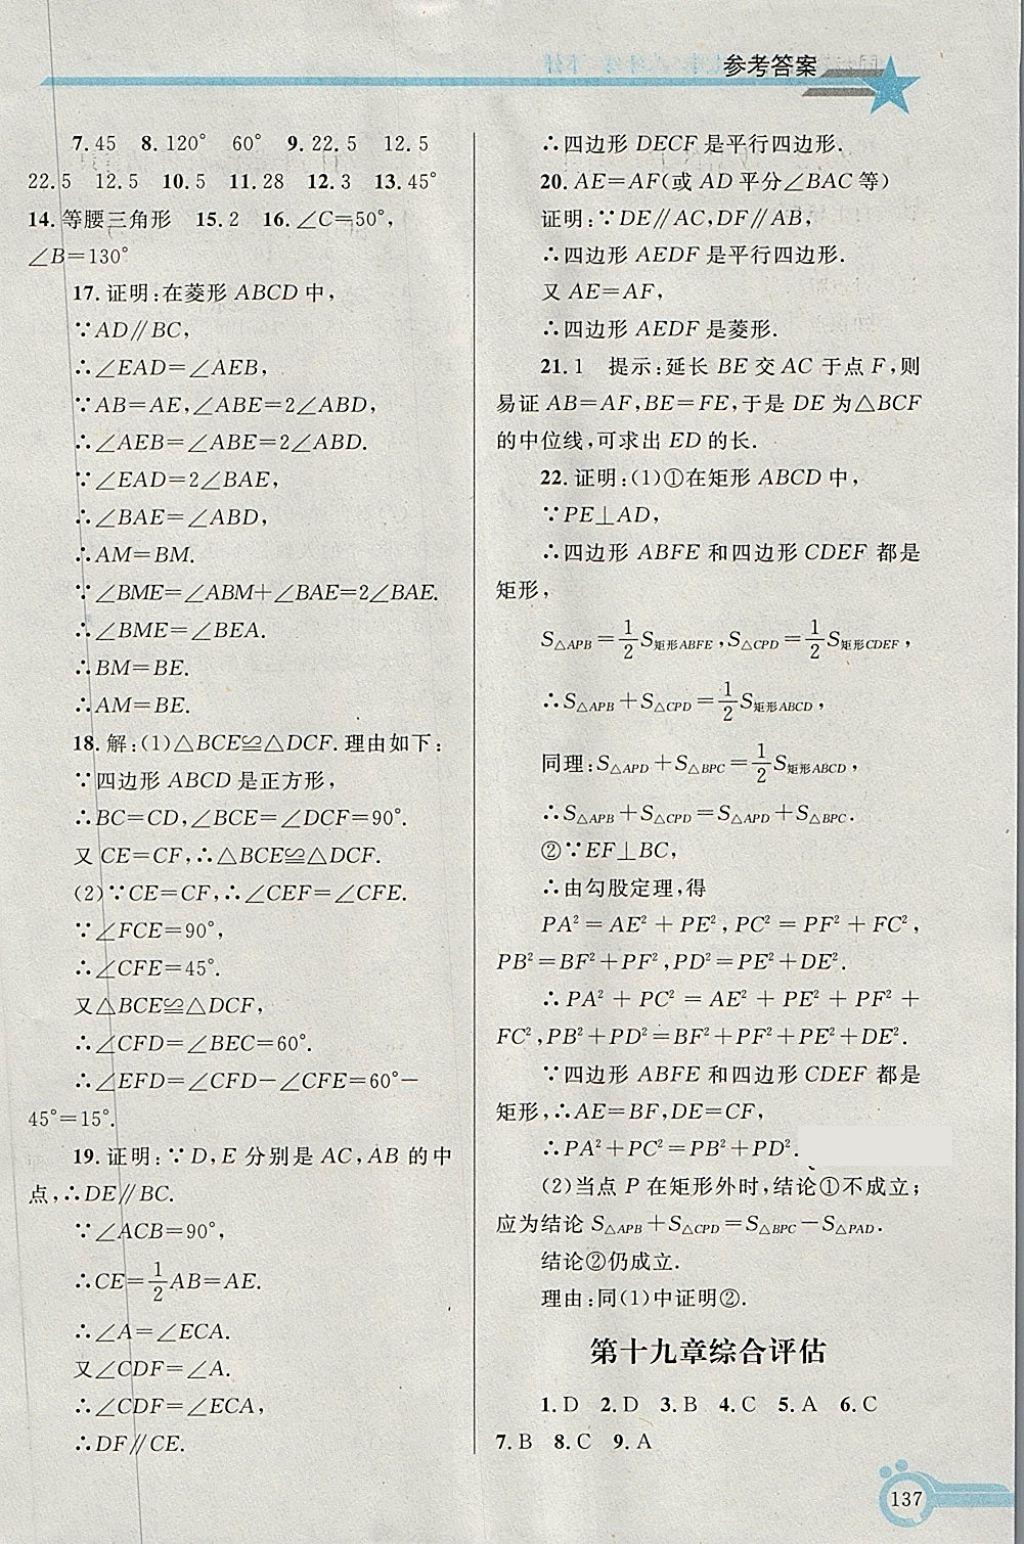 参考答案
7.45 8.120° 60° 9.22.5 12.5
22.5 12.5 10.5 11.28 12.3 13.45°
14.等腰三角形 15.2 16.∠C=50°,
∠B=130°
17.证明:在菱形 ABCD 中,
∵AD∥BC,
∴∠EAD=∠AEB,
∵AB=AE,∠ABE=2∠ABD,
∴∠AEB=∠ABE=2∠ABD.
∵∠EAD=2∠BAE,
∴∠BAE=∠ABD,
∴AM=BM.
∵∠BME=∠ABM+∠BAE=2∠BAE.
∴∠BME=∠BEA.
∴BM=BE.
∴AM=BE.
18.解:(1)△BCE≌△DCF.理由如下:
∵四边形 ABCD 是正方形,
∴BC=CD,∠BCE=∠DCF=90°.
又 CE=CF,∴△BCE≌△DCF.
(2)∵CE=CF,∴∠CEF=∠CFE.
∵∠FCE=90°,
∴∠CFE=45°.
又△BCE≌△DCF,
∴∠CFD=∠BEC=60°.
∴∠EFD=∠CFD-∠CFE=60°-
45°=15°.
19.证明:∵D,E 分别是 AC,AB 的中
点,∴DE∥BC.
∵∠ACB=90°,
∴CE=1/2AB=AE.
∴∠A=∠ECA.
又∠CDF=∠A.
∴∠CDF=∠ECA,
∴DF∥CE.
∴四边形 DECF 是平行四边形.
20.AE=AF(或 AD 平分∠BAC 等)
证明:∵DE∥AC,DF∥AB,
∴四边形 AEDF 是平行四边形.
又 AE=AF,
∴四边形 AEDF 是菱形.
21.1 提示:延长 BE 交 AC 于点 F,则
易证 AB=AF,BE=FE,于是 DE 为△BCF
的中位线,可求出 ED 的长.
22.证明:(1)①在矩形 ABCD 中,
∵PE⊥AD,
∴四边形 ABFE 和四边形 CDEF 都是
矩形,
S△APB=1/2S矩形ABFE,S△CPD=1/2S矩形CDEF,
∴S△APB+S△CPD=1/2S矩形ABCD,
同理:S△APD+S△BPC=1/2S矩形ABCD,
∴S△APB+S△CPD=S△APD+S△BPC.
②∵EF⊥BC,
∴由勾股定理,得
PA²=AE²+PE²,PC²=PF²+FC²,
PB²=BF²+PF²,PD²=PE²+DE².
∴PA²+PC²=AE²+PE²+PF²+
FC²,PB²+PD²=BF²+PF²+PE²+DE².
∵四边形 ABFE 和四边形 CDEF 都是
矩形,∴AE=BF,DE=CF,
∴PA²+PC²=PB²+PD².
(2)当点 P 在矩形外时,结论①不成立;
应为结论 S△APB+S△CPD=S△BPC-S△PAD.
结论②仍成立.
理由:同(1)中证明②.
第十九章综合评估
1.D 2.D 3.B 4.C 5.A 6.C
7.B 8.C 9.A
137